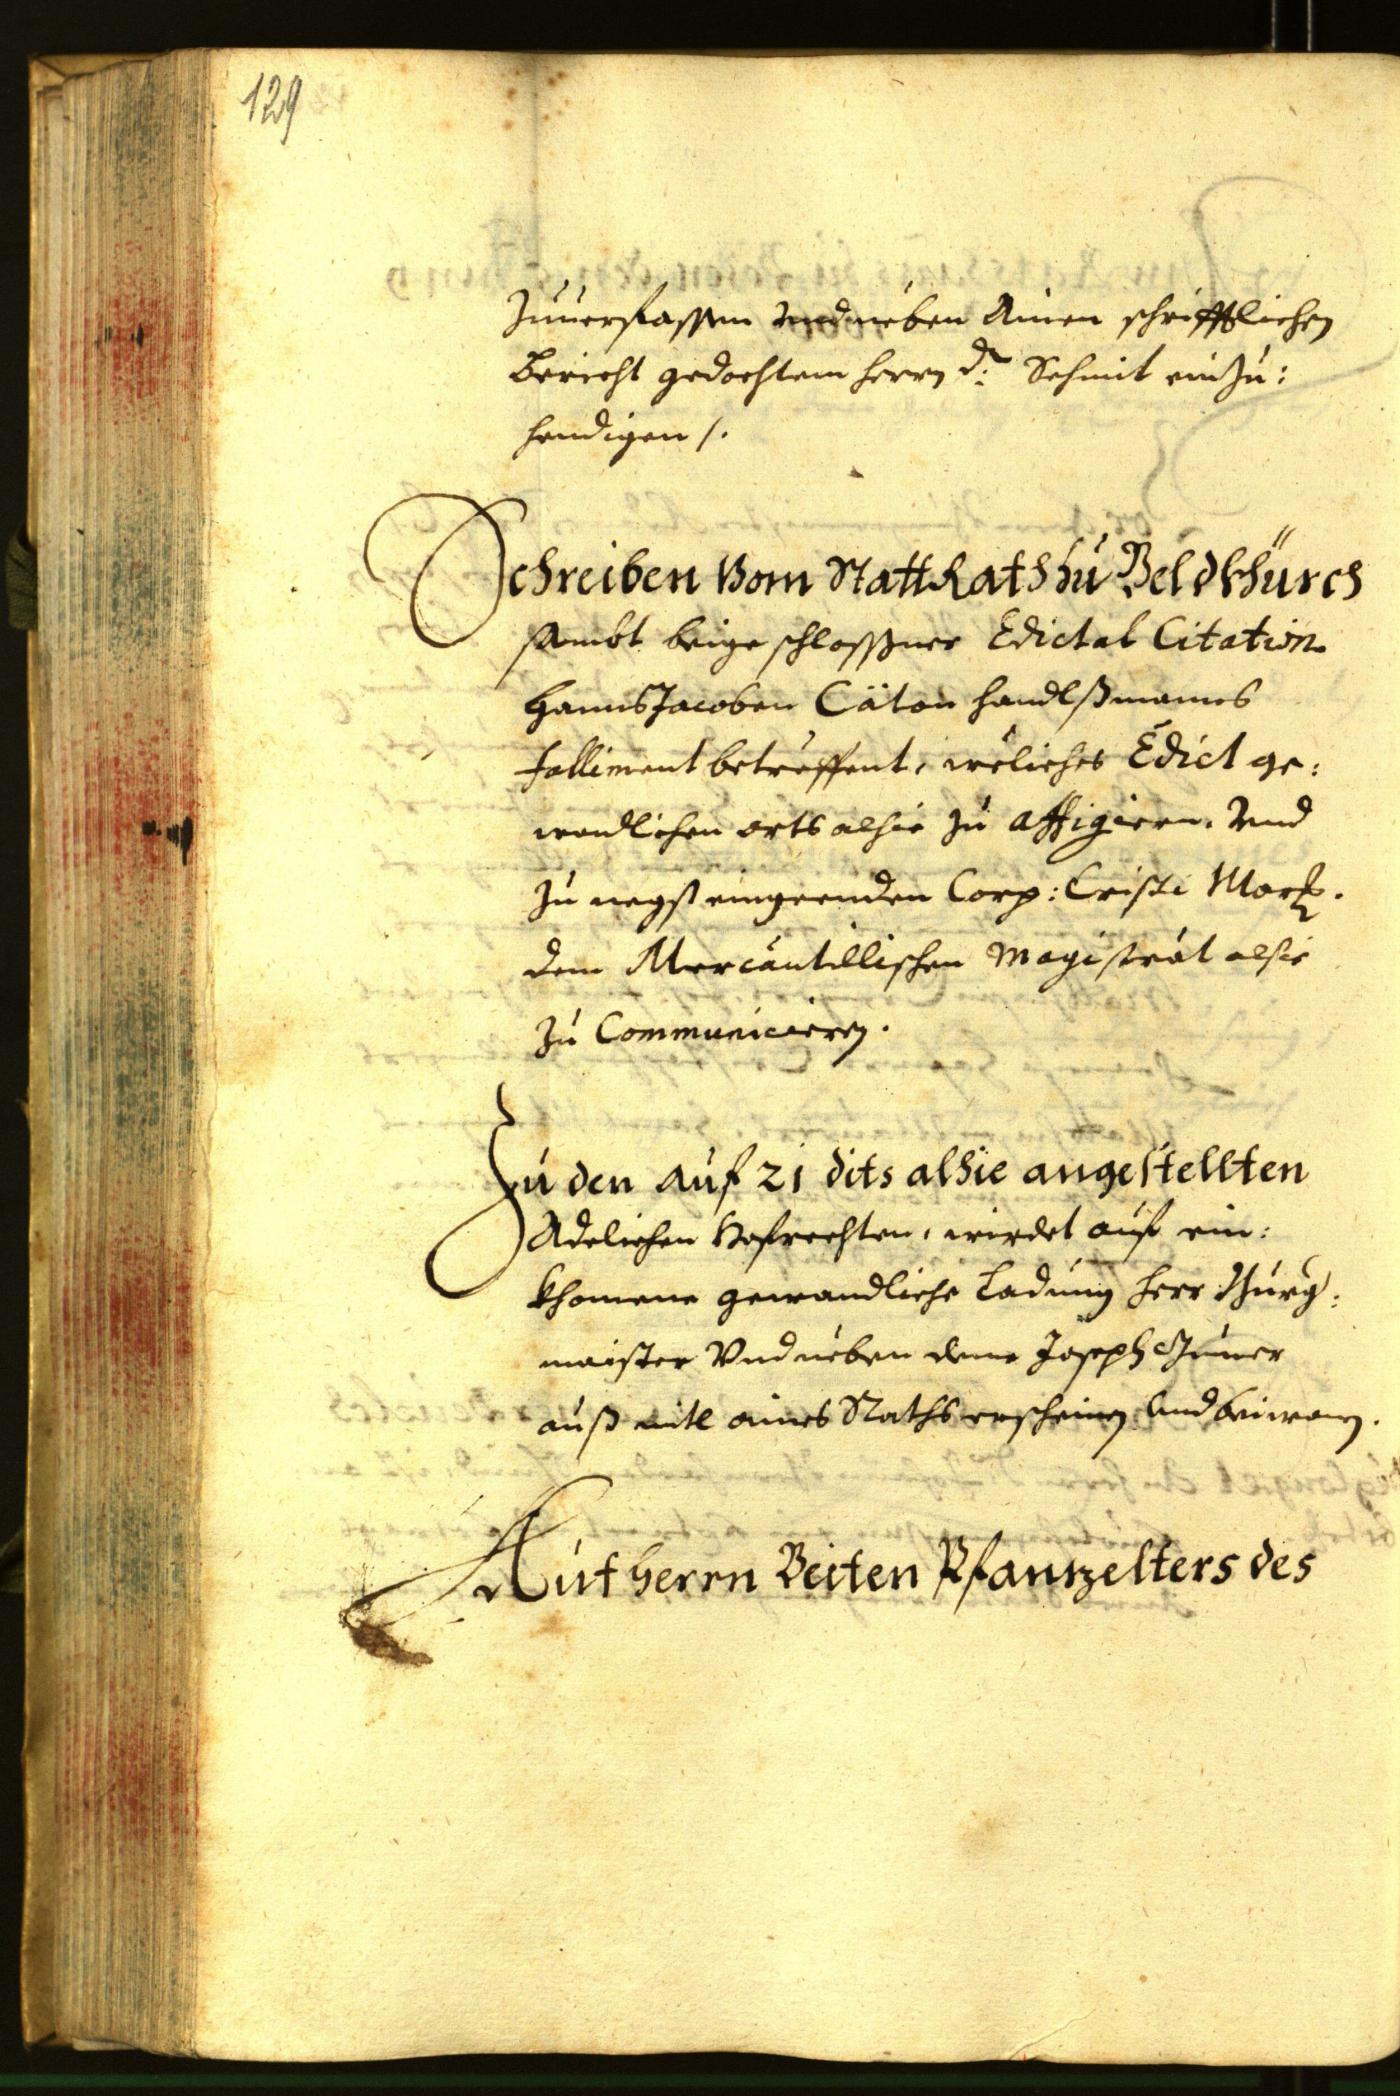 129
Zuuerfassen vnd neben Ainen schrifftlichen
bericht gedachtem herrn D: Schmit einzu:
hendigen /.
Schreiben Vom StattRath zu Veldkhürch
sambt beigeschlossner Edictal Citation
Hanns Jacoben Cäton handlßmanns
falliment betreffent, weliches Edict ge:
wendlichen orts alhie zu affigiern. Vnd
zu negst eingeenden Corp: Cristi Markt.
dem Mercantillischen Magistrat alhie
zu Communiciern.
Zu den auf 21 dits alhie angestellten
Adelichen Hofrechten, wirdet auf ein:
khomene gewendliche Ladung herr Burg:
maister Vnd neben deme Joseph
auß mitl aines Raths erscheinen Und beiwonen.
Auf herrn Veiten Pfantzelters des